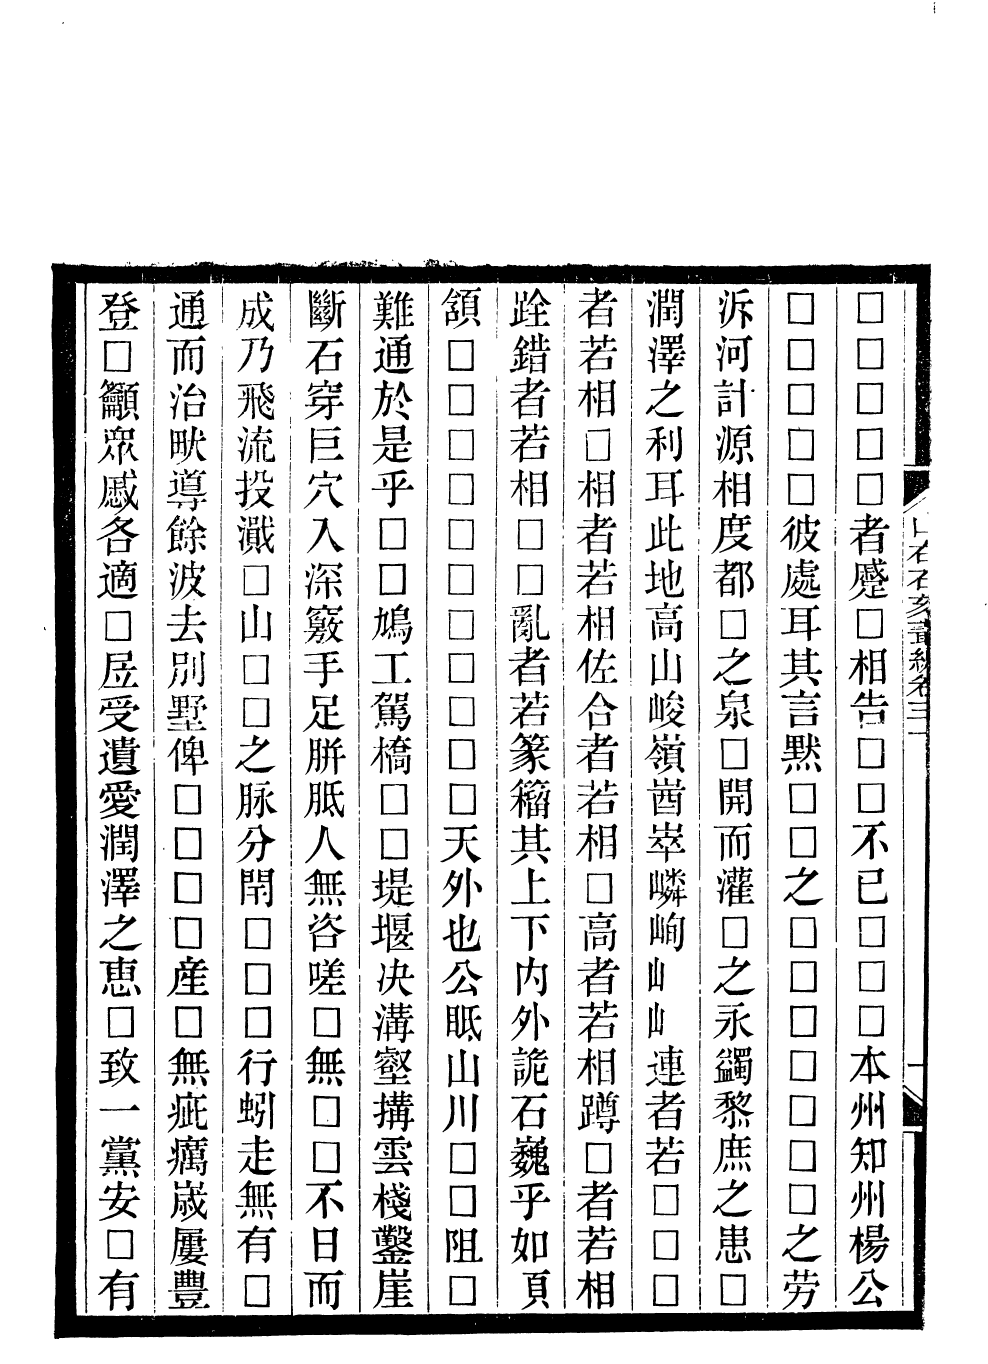 □□□□□者蹙□相告□□不已□□□本州知州楊公
□□□□□彼處耳其言黙□□之□□□□□□□之劳
泝河計源相度都□之泉□開而灌□之永蠲黎庶之患□
潤澤之利耳此地高山峻嶺崷崒嶙峋山山連者若□□□
者若相□相者若相佐合者若相□高者若相蹲□者若相
跧錯者若相□□亂者若篆籀其上下内外詭石巍乎如頁
頟□□□□□□□□□□□天外也公眡山川□□阻□
難通於是乎□□鳩工駕橋□□堤堰决溝壑搆雲棧鑿崖
斷石穿巨穴入深竅手足胼胝人無咨嗟□無□□不日而
成乃飛流投濈□山□□之脉分閈□□□行蚓走無有□
通而治畎導餘波去别墅俾□□□□産□無疵癘嵗屢豐
登□籲衆慼各適□㞐受遺愛潤澤之恵□致一黨安□有
山右石刻叢編卷三十